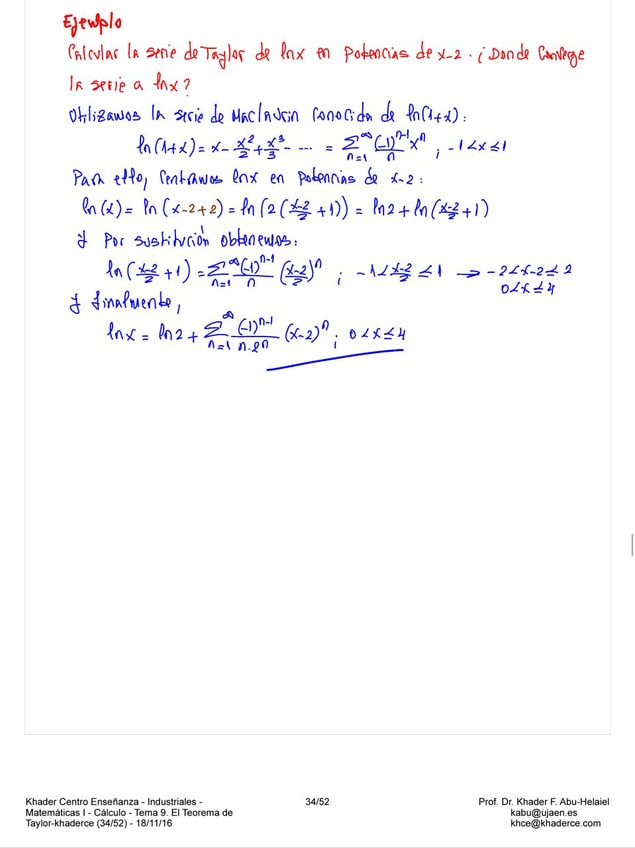 Ejemplo
Calcular la serie de Taylor de lnx en potencias de x-2. ¿Donde converge
la serie a lnx?
Utilizamos la serie de Maclaurin conocida de ln(1+x):
ln(1+x) = x - x²/2 + x³/3 - ... = ∑_{n=1}^{∞} (-1)^{n-1}/n x^n ; -1<x≤1
Para ello, centramos lnx en potencias de x-2:
ln(x) = ln(x-2+2) = ln(2(x-2/2 + 1)) = ln2 + ln(x-2/2 + 1)
y por sustitución obtenemos:
ln(x-2/2 + 1) = ∑_{n=1}^{∞} (-1)^{n-1}/n (x-2/2)^n ; -1 < x-2/2 ≤ 1 → -2<x-2≤2
0<x≤4
y finalmente,
lnx = ln2 + ∑_{n=1}^{∞} (-1)^{n-1}/n·2^n (x-2)^n ; 0<x≤4
Khader Centro Enseñanza - Industriales -
Matemáticas I - Cálculo - Tema 9. El Teorema de
Taylor-khaderce (34/52) - 18/11/16
34/52
Prof. Dr. Khader F. Abu-Helaiel
kabu@ujaen.es
khce@khaderce.com